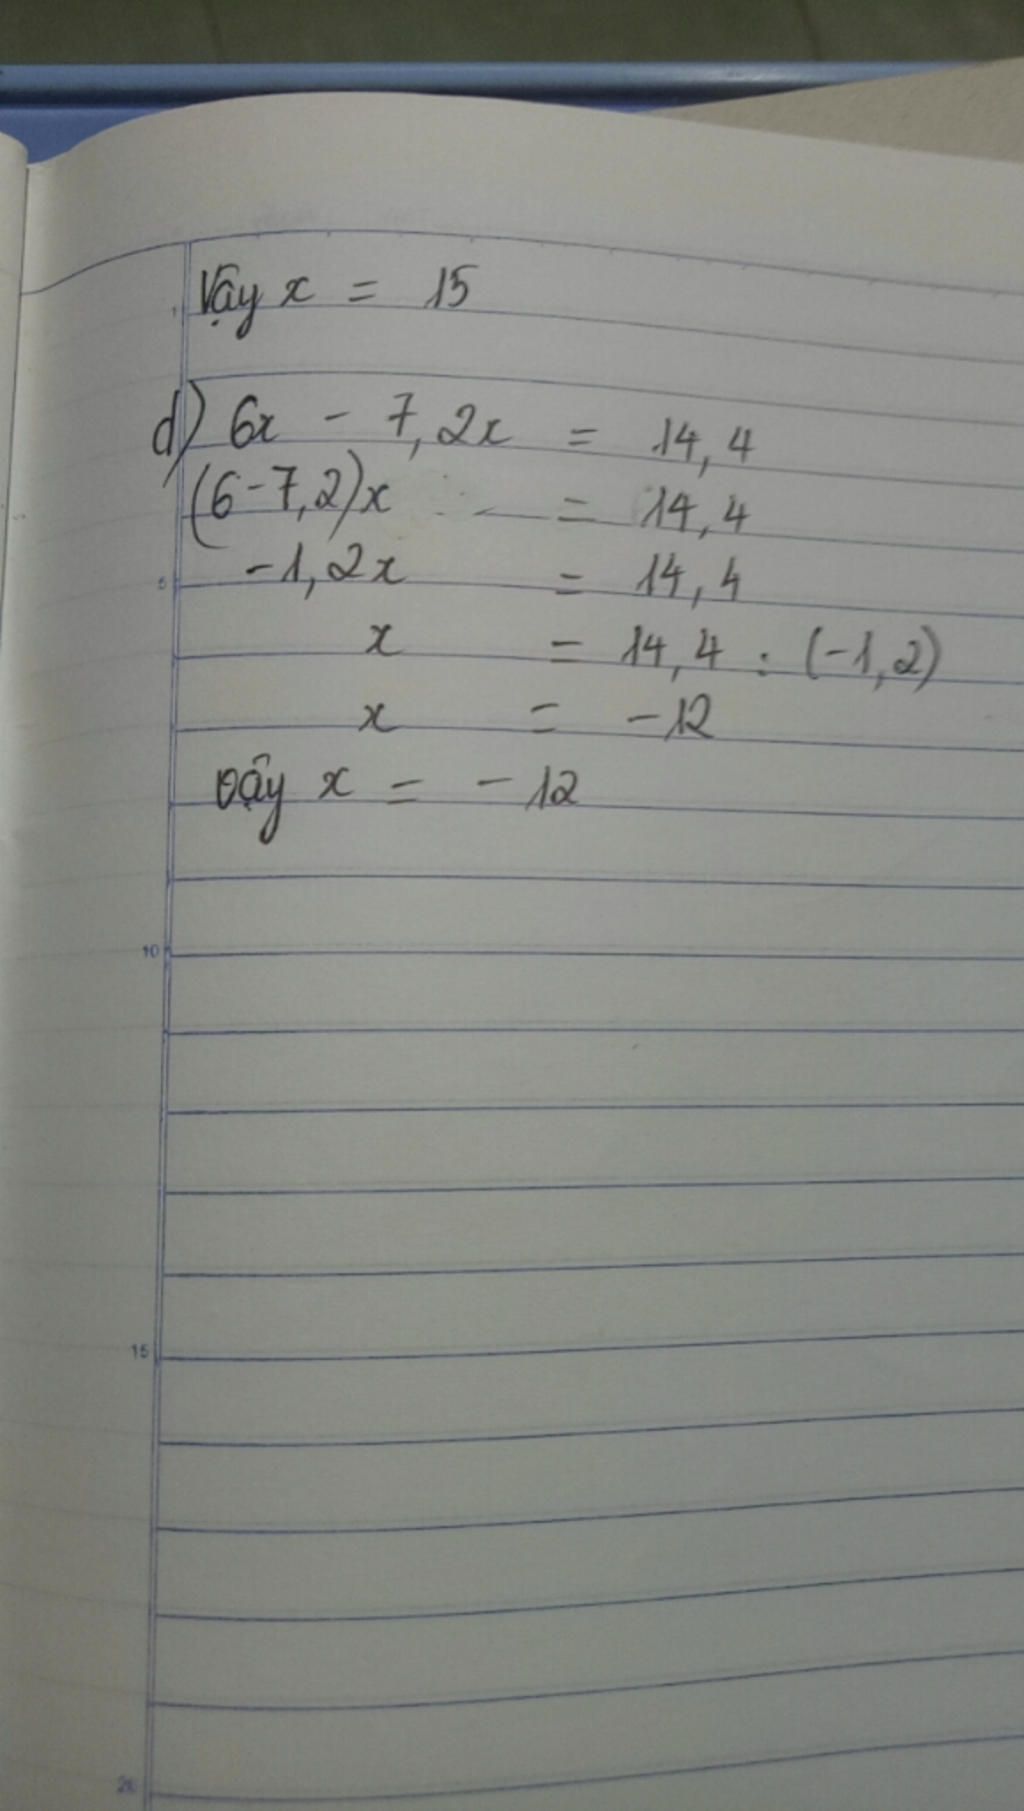 Vậy x = 15
d) 6x - 7,2x = 14,4
(6-7,2)x = 14,4
-1,2x = 14,4
x = 14,4 : (-1,2)
x = -12
vậy x = -12
1
5
10
15
20